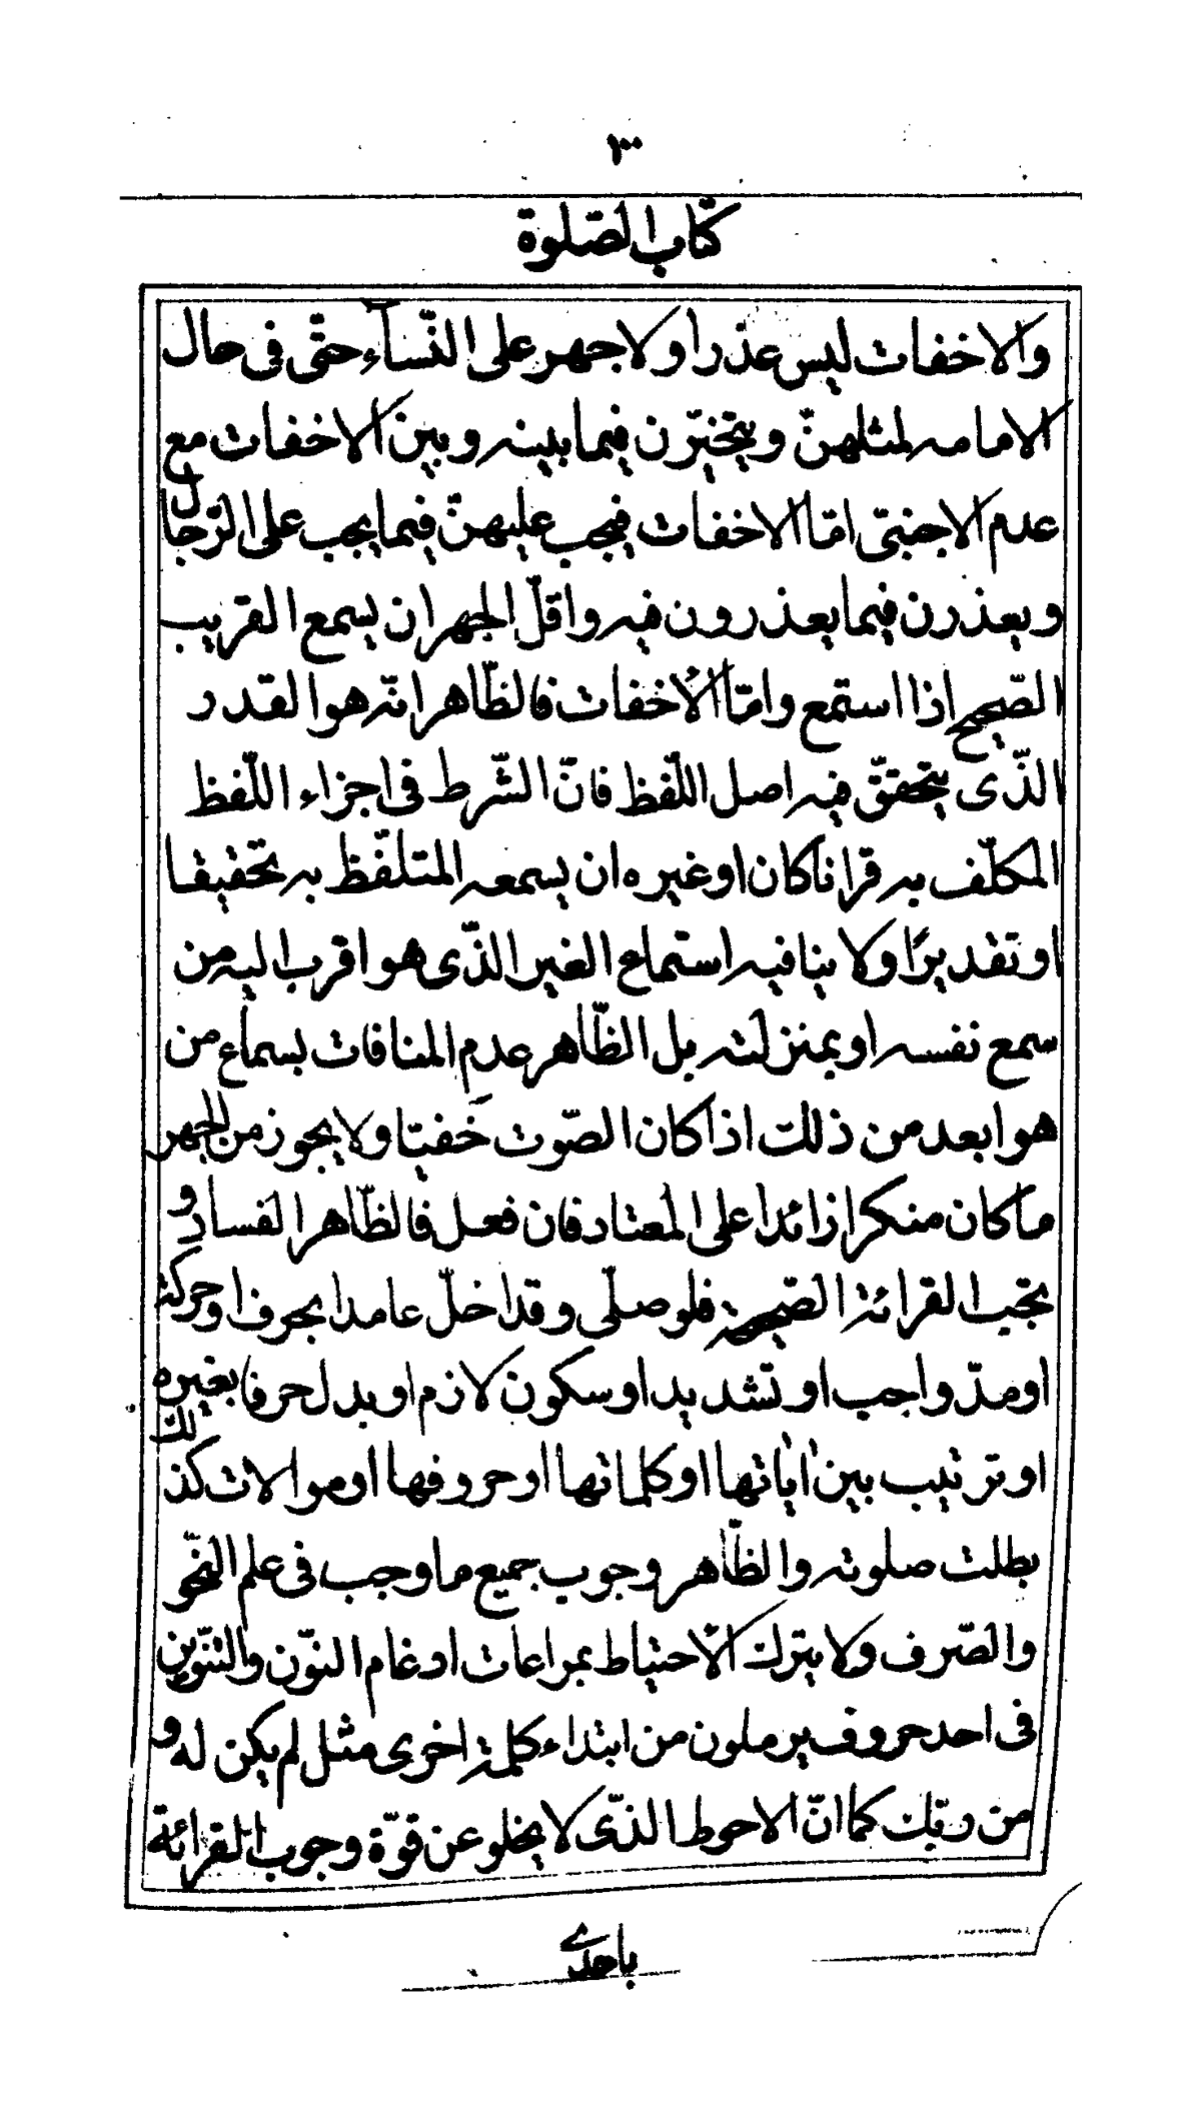 ١٠٠
كتاب الصّلوة
والاخفات ليس عذرا ولا جهر على النّساء حتّى فى حال
الامامه لمثلهنّ ويتخيّرن فيما بينه وبين الاخفات مع
عدم الاجنبّى امّا الاخفات فيجب عليهنّ فيما يجب على الرّجال
ويعذرن فيما يعذرون فيه واقلّ الجهر ان يسمع القريب
الصّحيح اذا استمع وامّا الأخفات فالظّاهر انّه هو القدر
الذّى يتحقّق فيه اصل اللّفظ فانّ الشّرط فى اجزاء اللّفظ
المكلّف به قرانا كان او غيره ان يسمعه المتلفّظ به تحقيقا
او تقديرًا ولا ينافيه استماع الغير الذّى هو اقرب اليه من
سمع نفسه او بمنزلته بل الظّاهر عدم المنافات بسماع من
هو ابعد من ذلك اذا كان الصّوت خَفيّا ولا يجوز من الجهر
ما كان منكرا زائدا على المعتاد فان فعل فالظّاهر الفساد و
يجب القرائة الصّحيحة فلو صلّى وقد اخلّ عامدا بحرف او حركة
او مدّ واجب او تشديد او سكون لازم او بدل حرفا بغيره
او ترتيب بين اياتها او كلماتها او حروفها او موالات كذلك
بطلت صلوته والظّاهر وجوب جميع ما وجب فى علم النّحو
والصّرف ولا يترك الأحتياط بمراعات ادغام النّون والتّنوين
فى احد حروف يرملون من ابتداء كلمة اخرى مثل لم يكن له و
من ربّك كما انّ الاحوط الذّى لا يخلو عن قوّة وجوب القرائة
باحدى